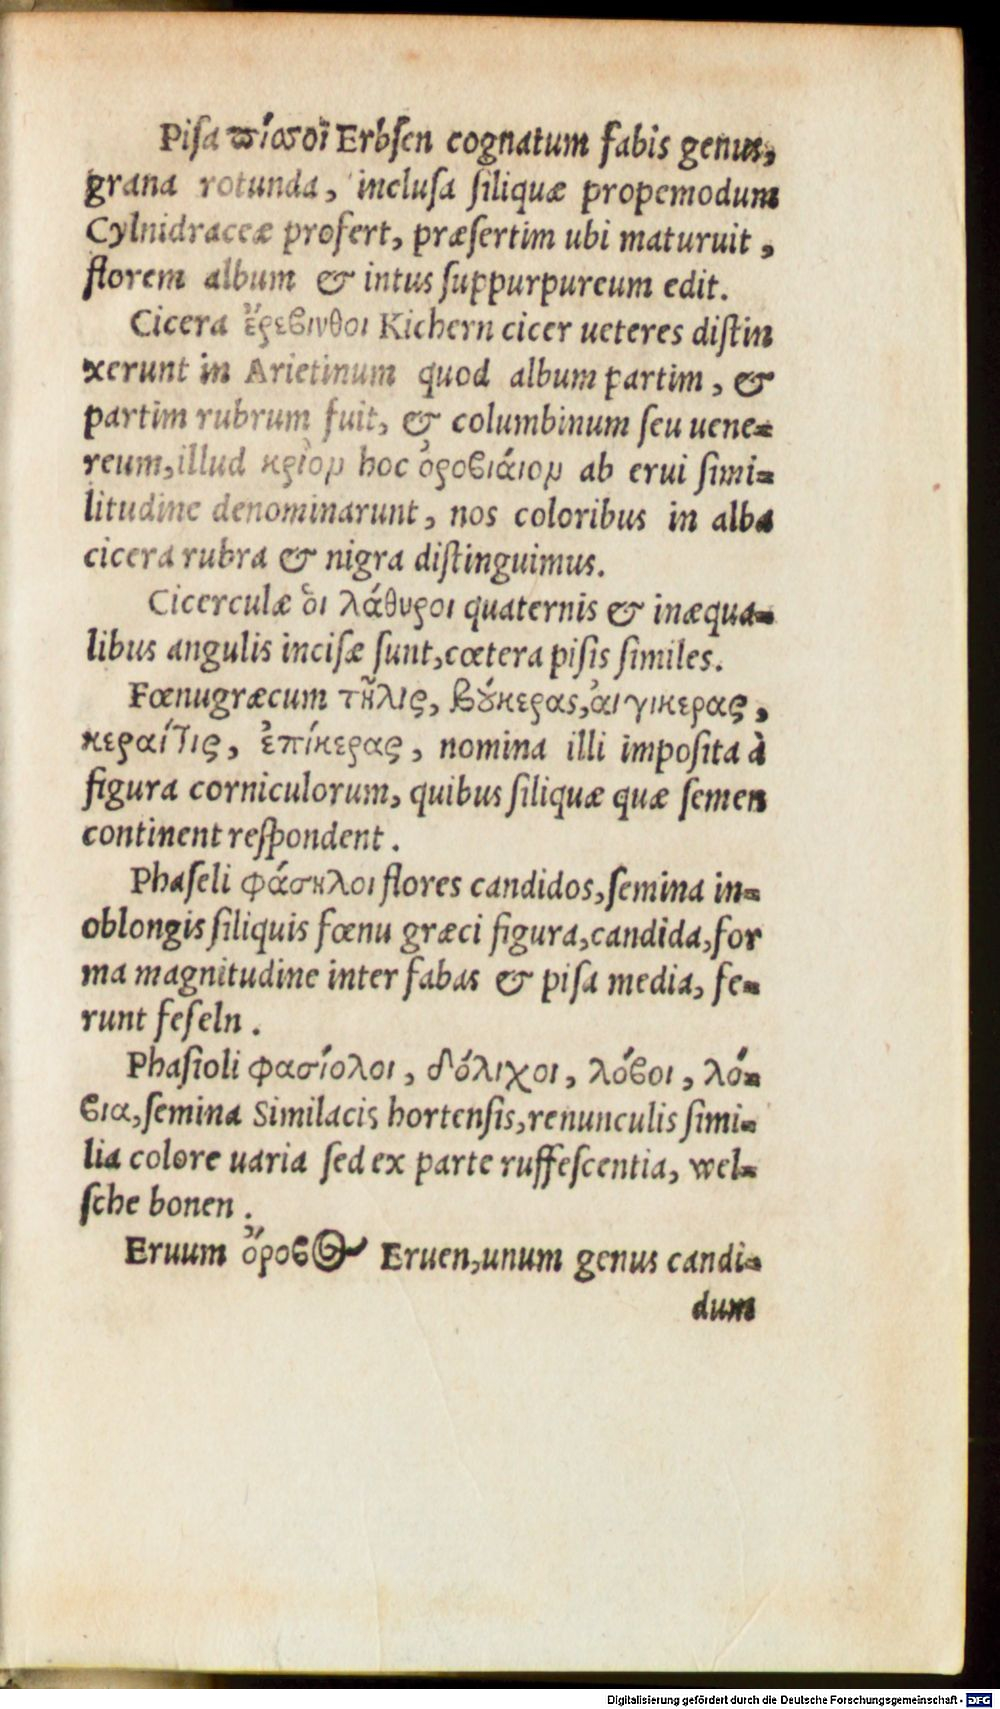 Piſa πίσοϊ Erbſen cognatum fabis genus,
grana rotunda, incluſa ſiliquæ propemodum
Cylnidraceæ profert, præſertim ubi maturuit,
florem album & intus ſuppurpureum edit.
Cicera ἔρεβινθοι Kichern cicer ueteres diſtin
xerunt in Arietinum quod album partim, &
partim rubrum fuit, & columbinum ſeu uene-
reum, illud κριὸν hoc ὀροβιάιον ab erui ſimi-
litudine denominarunt, nos coloribus in alba
cicera rubra & nigra diſtinguimus.
Cicerculæ ὅι λάθυροι quaternis & inæqua-
libus angulis inciſæ ſunt, cœtera piſis ſimiles.
Fœnugræcum τῆλις, βούκερας, ἀιγικερας,
κεραίτις, ἐπίκερας, nomina illi impoſita à
figura corniculorum, quibus ſiliquæ quæ ſemen
continent reſpondent.
Phaſeli φάσηλοι flores candidos, ſemina in-
oblongis ſiliquis fœnu græci figura, candida, for
ma magnitudine inter fabas & piſa media, fe-
runt feſeln.
Phaſioli φασίολοι, δόλιχοι, λόβοι, λό-
βια, ſemina Similacis hortenſis, renunculis ſimi-
lia colore uaria ſed ex parte ruffeſcentia, wel-
ſche bonen.
Eruum ὄροβος Eruen, unum genus candi-
dum
Digitalisierung gefördert durch die Deutsche Forschungsgemeinschaft - DFG